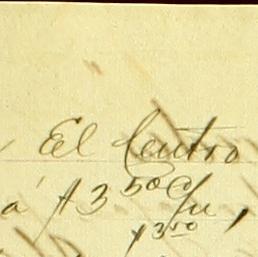 El Centro
á $3 50 c/u,
$3 50